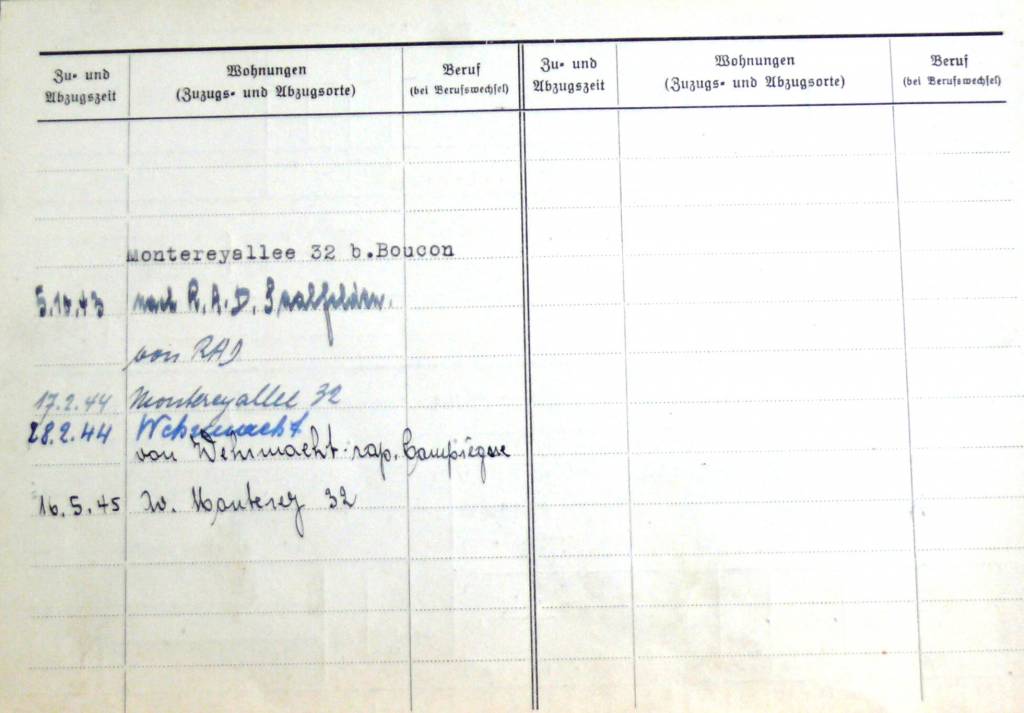 Zu- und Abzugszeit
Wohnungen
(Zuzugs- und Abzugsorte)
Beruf
(bei Berufswechsel)
Zu- und Abzugszeit
Wohnungen
(Zuzugs- und Abzugsorte)
Beruf
(bei Berufswechsel)
Montereyallee 32 b.Boucon
5.10.43 nach R.A.D. Saalfelden.
von RAD
17.2.44 Montereyallee 32
28.2.44 Wehrmacht
von Wehrmacht rap.
16.5.45 Av. Monterey 32